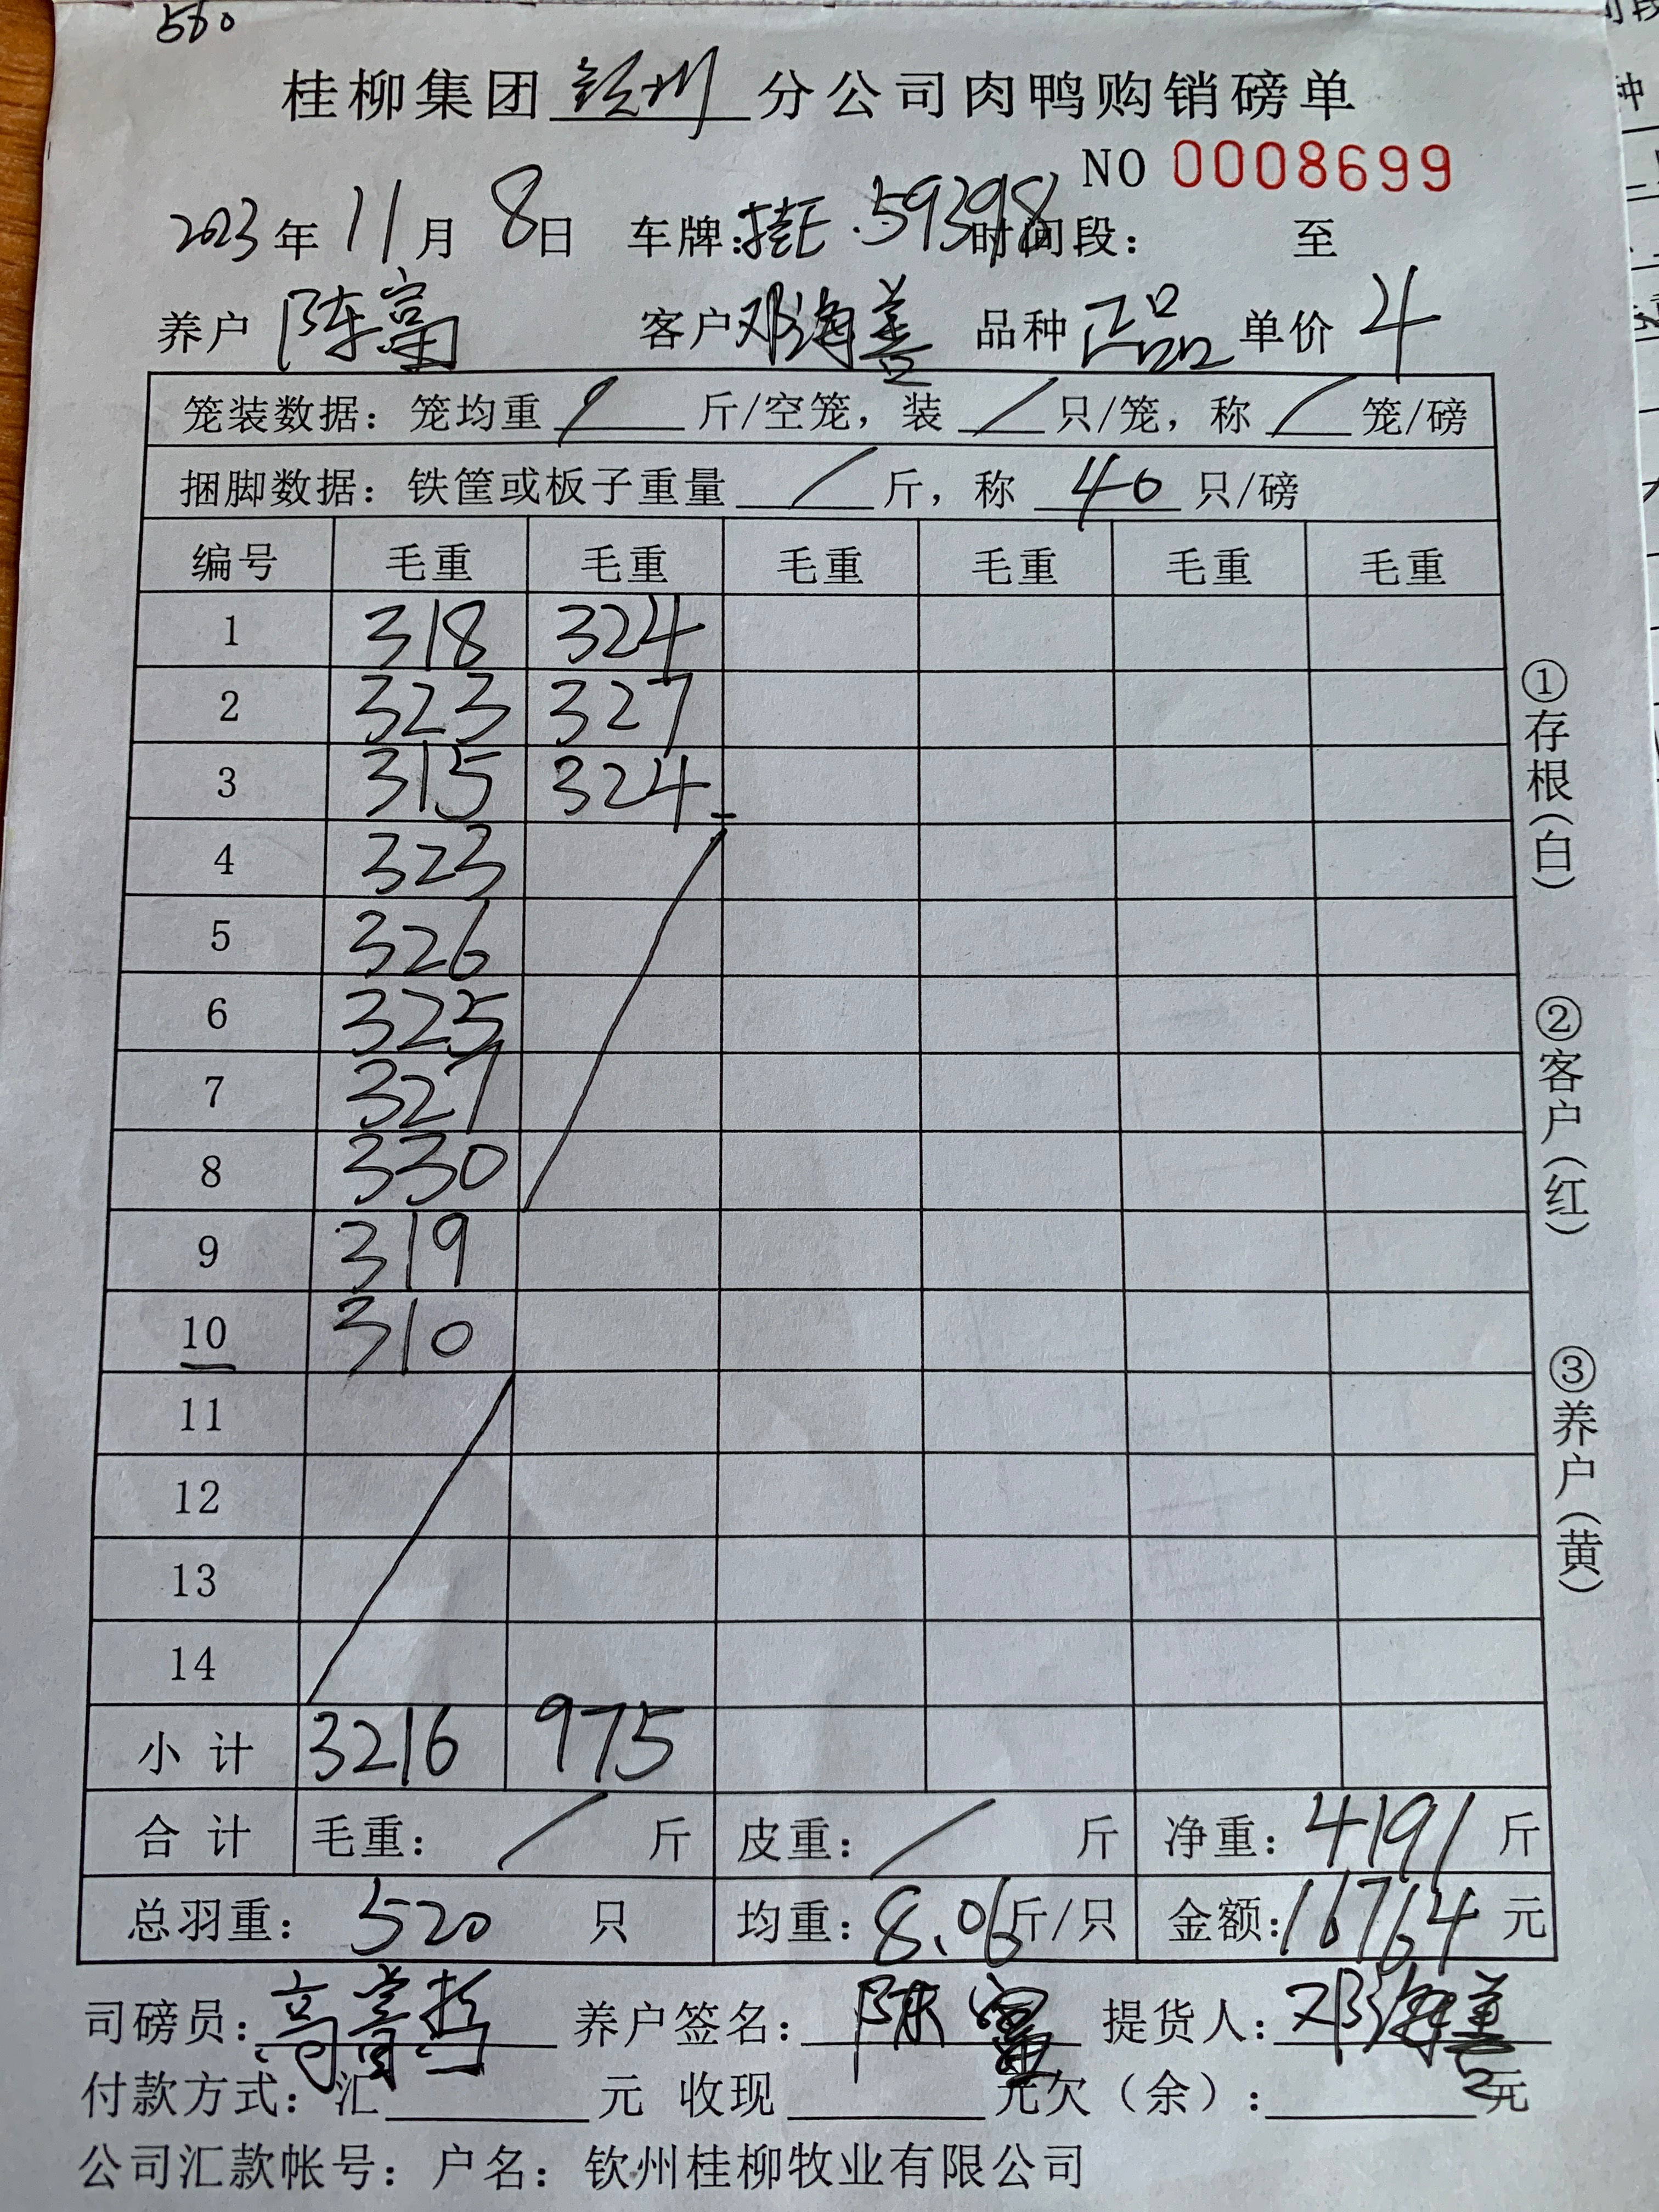 560
桂柳集团 钦州 分公司肉鸭购销磅单
NO 0008699
2023年 11月 8日 车牌: 桂E.59398 时间段: 至
养户 陈富 客户 邓海善 品种 正品 单价 4
笼装数据: 笼均重 / 斤/空笼, 装 / 只/笼, 称 / 笼/磅
捆脚数据: 铁筐或板子重量 / 斤, 称 40 只/磅
编号 毛重 毛重 毛重 毛重 毛重 毛重
1 318 324
2 323 327
3 315 324
4 323
5 326
6 325
7 327
8 330
9 319
10 310
11
12
13
14
小计 3216 975
合计 毛重: / 斤 皮重: / 斤 净重: 4191 斤
总羽重: 520 只 均重: 8.06 斤/只 金额: 16764 元
司磅员: 养户签名: 陈富 提货人: 邓海善
付款方式: 汇 元 收现 元欠(余): 元
公司汇款帐号: 户名: 钦州桂柳牧业有限公司
①存根(白) ②客户(红) ③养户(黄)